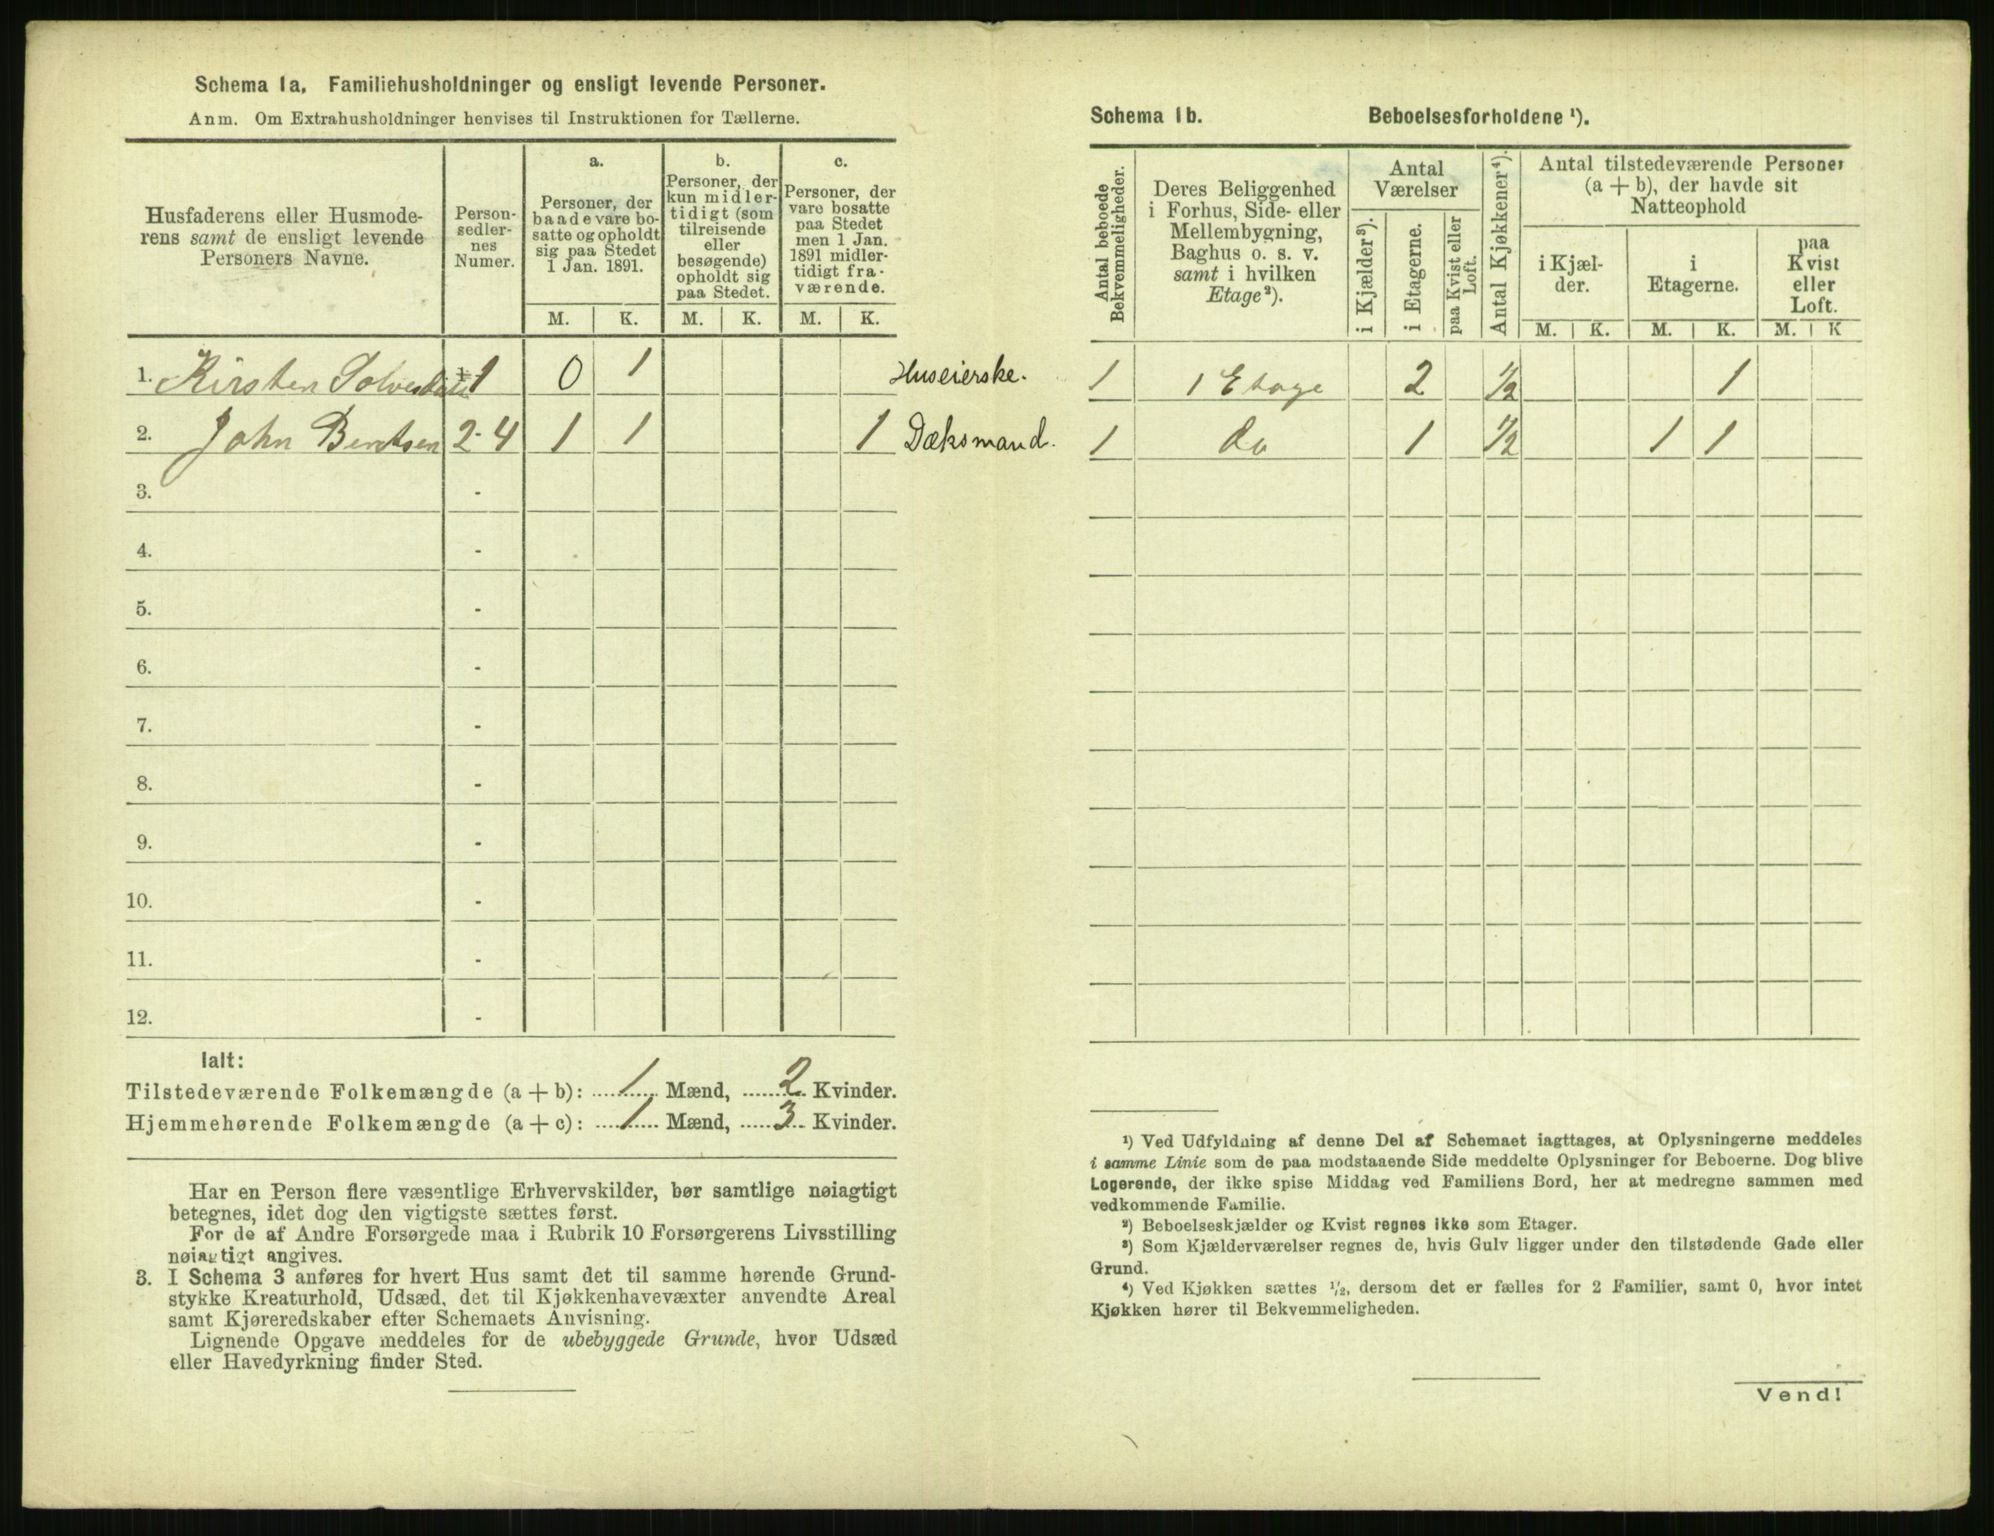 Schema 1a. Familiehusholdninger og ensligt levende Personer.
Anm. Om Extrahusholdninger henvises til Instruktionen for Tællerne.
Husfaderens eller Husmode-
rens samt de ensligt levende
Personers Navne.
Person-
sedler-
nes
Numer.
a.
Personer, der
baade vare bo-
satte og opholdt
sig paa Stedet
1 Jan. 1891.
b.
Personer, der
kun midler-
tidigt (som
tilreisende
eller
besøgende)
opholdt sig
paa Stedet.
c.
Personer, der
vare bosatte
paa Stedet
men 1 Jan.
1891 midler-
tidigt fra-
værende.
M. K. M. K. M. K.
1. Kirsten 1 0 1 Huseierske.
2. John Berntsen 2-4 1 1 1 Dæksmand.
3. -
4. -
5. -
6. -
7. -
8. -
9. -
10. -
11. -
12. -
Ialt:
Tilstedeværende Folkemængde (a + b): 1 Mænd, 2 Kvinder.
Hjemmehørende Folkemængde (a + c): 1 Mænd, 3 Kvinder.
Har en Person flere væsentlige Erhvervskilder, bør samtlige nøiagtigt
betegnes, idet dog den vigtigste sættes først.
For de af Andre Forsørgede maa i Rubrik 10 Forsørgerens Livsstilling
nøiagtigt angives.
3. I Schema 3 anføres for hvert Hus samt det til samme hørende Grund-
stykke Kreaturhold, Udsæd, det til Kjøkkenhavevæxter anvendte Areal
samt Kjøreredskaber efter Schemaets Anvisning.
Lignende Opgave meddeles for de ubebyggede Grunde, hvor Udsæd
eller Havedyrkning finder Sted.
Schema 1b. Beboelsesforholdene ¹).
Antal beboede
Bekvemmeligheder.
Deres Beliggenhed
i Forhus, Side- eller
Mellembygning,
Baghus o. s. v.
samt i hvilken
Etage²).
Antal
Værelser
i Kjælder³).
i Etagerne.
paa Kvist eller
Loft.
Antal Kjøkkener⁴).
Antal tilstedeværende Personer
(a + b), der havde sit
Natteophold
i Kjæl-
der.
i
Etagerne.
paa
Kvist
eller
Loft.
M. K. M. K. M. K
1 1 Etage 2 1/2 1
1 do 1 1/2 1 1
¹) Ved Udfyldning af denne Del af Schemaet iagttages, at Oplysningerne meddeles
i samme Linie som de paa modstaaende Side meddelte Oplysninger for Beboerne. Dog blive
Logerende, der ikke spise Middag ved Familiens Bord, her at medregne sammen med
vedkommende Familie.
²) Beboelseskjælder og Kvist regnes ikke som Etager.
³) Som Kjælderværelser regnes de, hvis Gulv ligger under den tilstødende Gade eller
Grund.
⁴) Ved Kjøkken sættes ½, dersom det er fælles for 2 Familier, samt 0, hvor intet
Kjøkken hører til Bekvemmeligheden.
Vend!